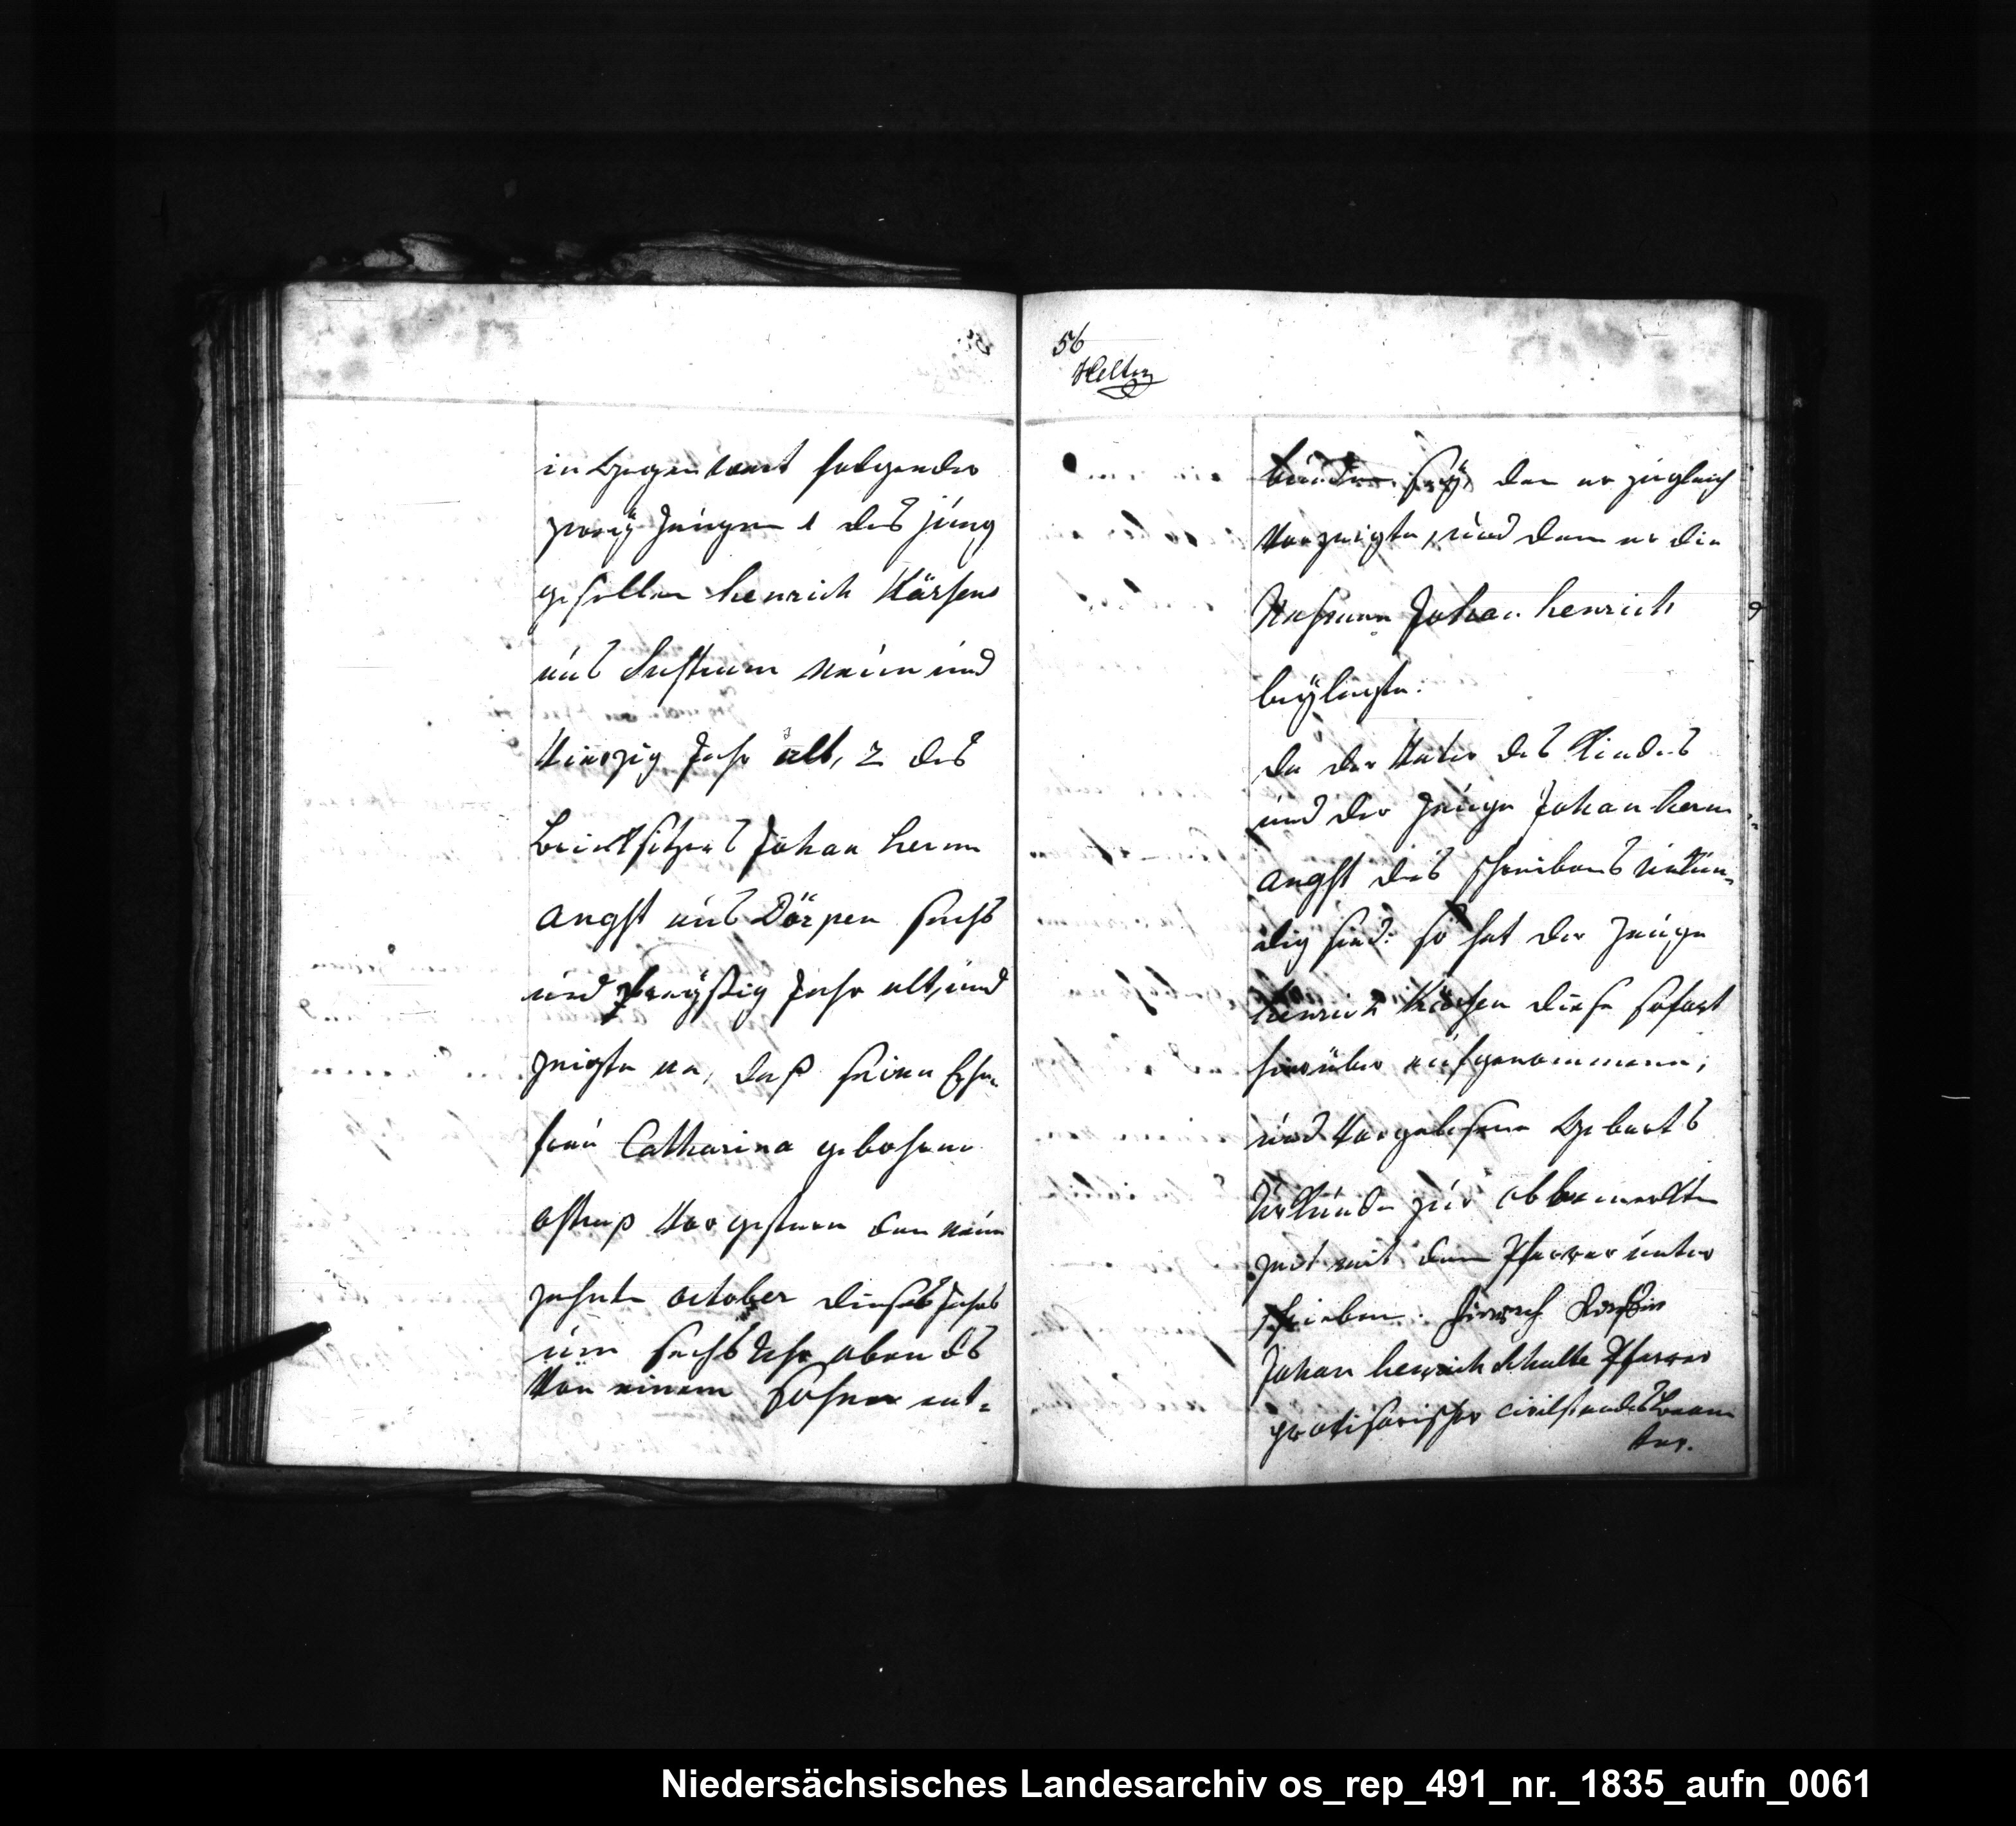 in Gegenwart folgender
zweÿ Zeugen 1 des jung
gesellen henrich Kärsens
aus Sustrum neun und
Vierzig Jahr alt, 2 des
Brinksitzers Johan herm
Angst aus Dörpen sechs
und dreÿßig Jahr alt, und
zeigte an, daß seine Ehe-
frau Catharina gebohrne
Vorgestern den neun
zehnten october dieses Jahrs
um sechs Uhr abends
Von einem Sohne ent-
56
bunden seÿ, den er zugleich
Vorzeigte, und dem er die
Nahmen Johan henrich
beÿlegte.
da der Vater des Kindes
und der Zeuge Johan herm
Angst des schreibens unkun-
dig sind: so hat der Zeuge
henrich Kärsen diese sofort
hierüber aufgenommene,
und Vorgelesene Geburts
Urkunde zur obbemerkten
Zeit mit dem Pfarrer unter
schrieben. Hinrich
Johan henrich Schulte Pfarrer
provisorischer civilstandsbeam
ter.
Niedersächsisches Landesarchiv os_rep_491_nr._1835_aufn_0061